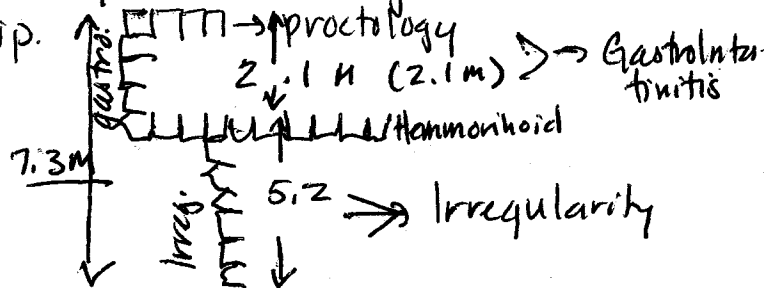 ip.
gastro.
proctology
2.1 M (2.1m)
GastroInta-
tinitis
Hemmorihoid
7.3M
Irreg.
5.2
Irregularity